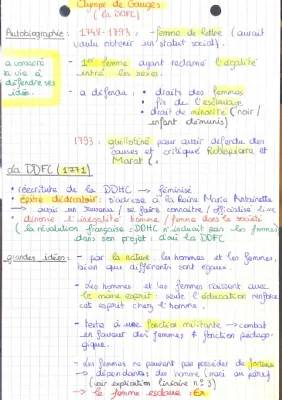 Olympe de Gouges
(la DDFC)
Autobiographie : 1748-1793 : - femme de lettre (aurait
voulu obtenir un statut social).
a consacré
sa vie à
défendre ses
idées.
- 1ère femme ayant réclamé l'égalité
entre les sexes.
- a défendu : • droits des femmes
• fin de l'esclavage
• droit de minorité (noir/
enfant démunis)
1793 : guillotiné pour avoir défendu des
causes et critiqué Robespierre et
Marat.
La DDFC (1771)
• réécriture de la DDHC → féminisé
• épître dédicatoire : s'adresse à la Reine Marie Antoinette
→ avoir un / se faire connaître / officialisé
• dénonce l'inégalité homme / femme dans la société
(la révolution française : DDHC n'induit pas les femmes
dans son projet : d'où la DDFC
grandes idées : - par la nature les hommes et les femmes,
bien que différents sont égaux.
- Les hommes et les femmes naissent avec
le même esprit : seule l'éducation renforce
cet esprit chez l'homme.
- texte à une fonction militante → combat
en faveur des femmes & fonction pédago-
gique.
- Les femmes ne peuvent pas posséder de fortune
→ dépendantes des hommes (mari ou père)
(voir explication linéaire n°3)
→ la femme esclave :